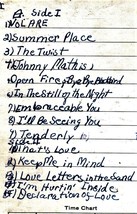 A. Side I
1) VOLARE
2) Summer Place
3) The Twist
4) Johnny Mathis)
5) Open Fire
6) In The Still of the Night
7) Embraceable You
8) I'll Be Seeing You
9) Tenderly
Side II
1) What's Love
2) Keep Me in Mind
3) Love Letters in the Sand
4) I'm Hurtin' Inside
5) Declaration of Love
Time Chart